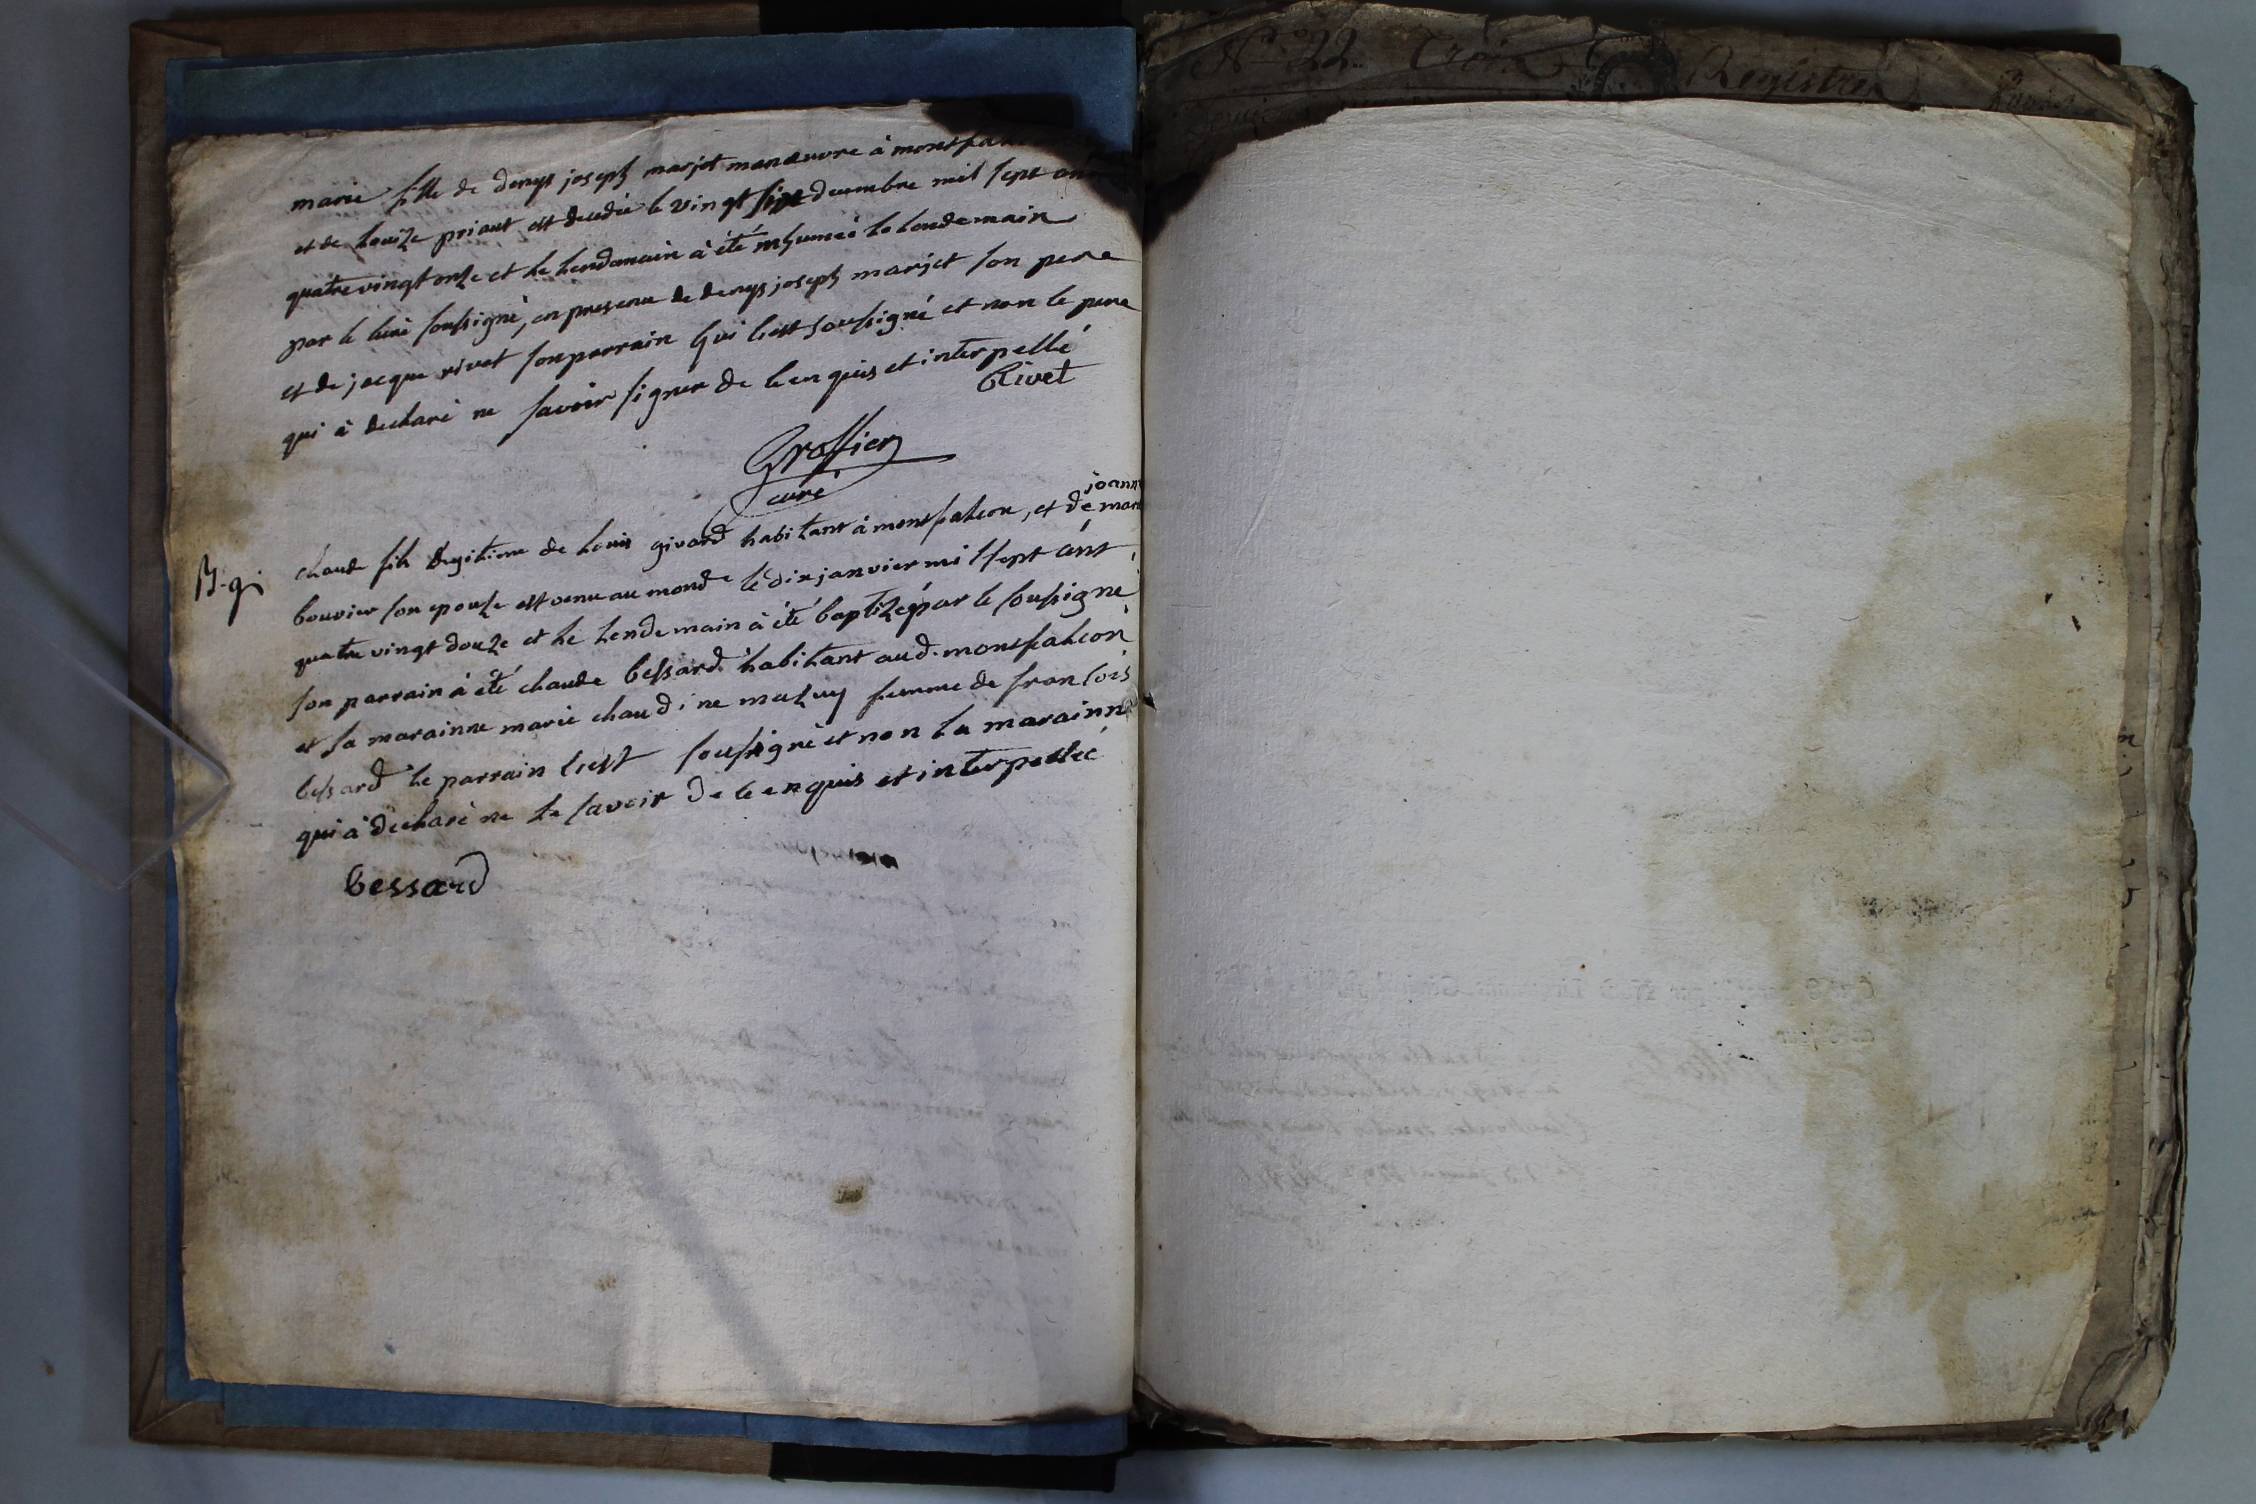 marie fille de denys joseph marjet manœuvre à montfal
et de louize priant est decedée le vingt six decembre mil sept cent
quatrevingt onze et le lendemain à été inhumée le lendemain
par le curé soussigné, en presence de denys joseph marjet son pere
et de jacque rivet son parrain qui s'est soussigné et non le pere
qui à declaré ne savoir signer de ce enquis et interpellé
Rivet
Groffier
curé
joann
B. gi
claude fils legitime de louis girard habitant à montfalcon, et de mar
bouvier son epouse est venu au monde le dix janvier mil sept cent
quatre vingt douze et le lendemain à été baptizé par le soussigné
son parrain à été claude bessard habitant aud. montfalcon
et sa marainne marie claudine mazuy femme de francois
bessard le parrain s'est soussigné et non la marainne
qui à declaré ne le savoir de ce enquis et interpellée
bessard
N° 22 Registre